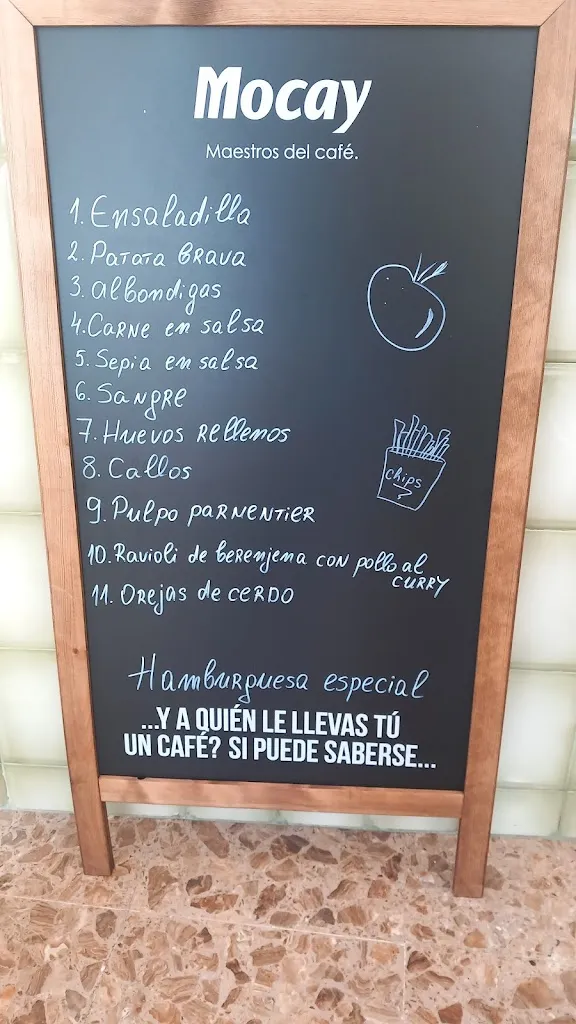 Mocay
Maestros del café.
1. Ensaladilla
2. Patata Brava
3. albondigas
4. Carne en salsa
5. Sepia en salsa
6. Sangre
7. Huevos rellenos
8. Callos
9. Pulpo parmentier
10. Ravioli de berenjena con pollo al
curry
chips
11. Orejas de cerdo
Hamburguesa especial
...Y A QUIÉN LE LLEVAS TÚ
UN CAFÉ? SI PUEDE SABERSE...